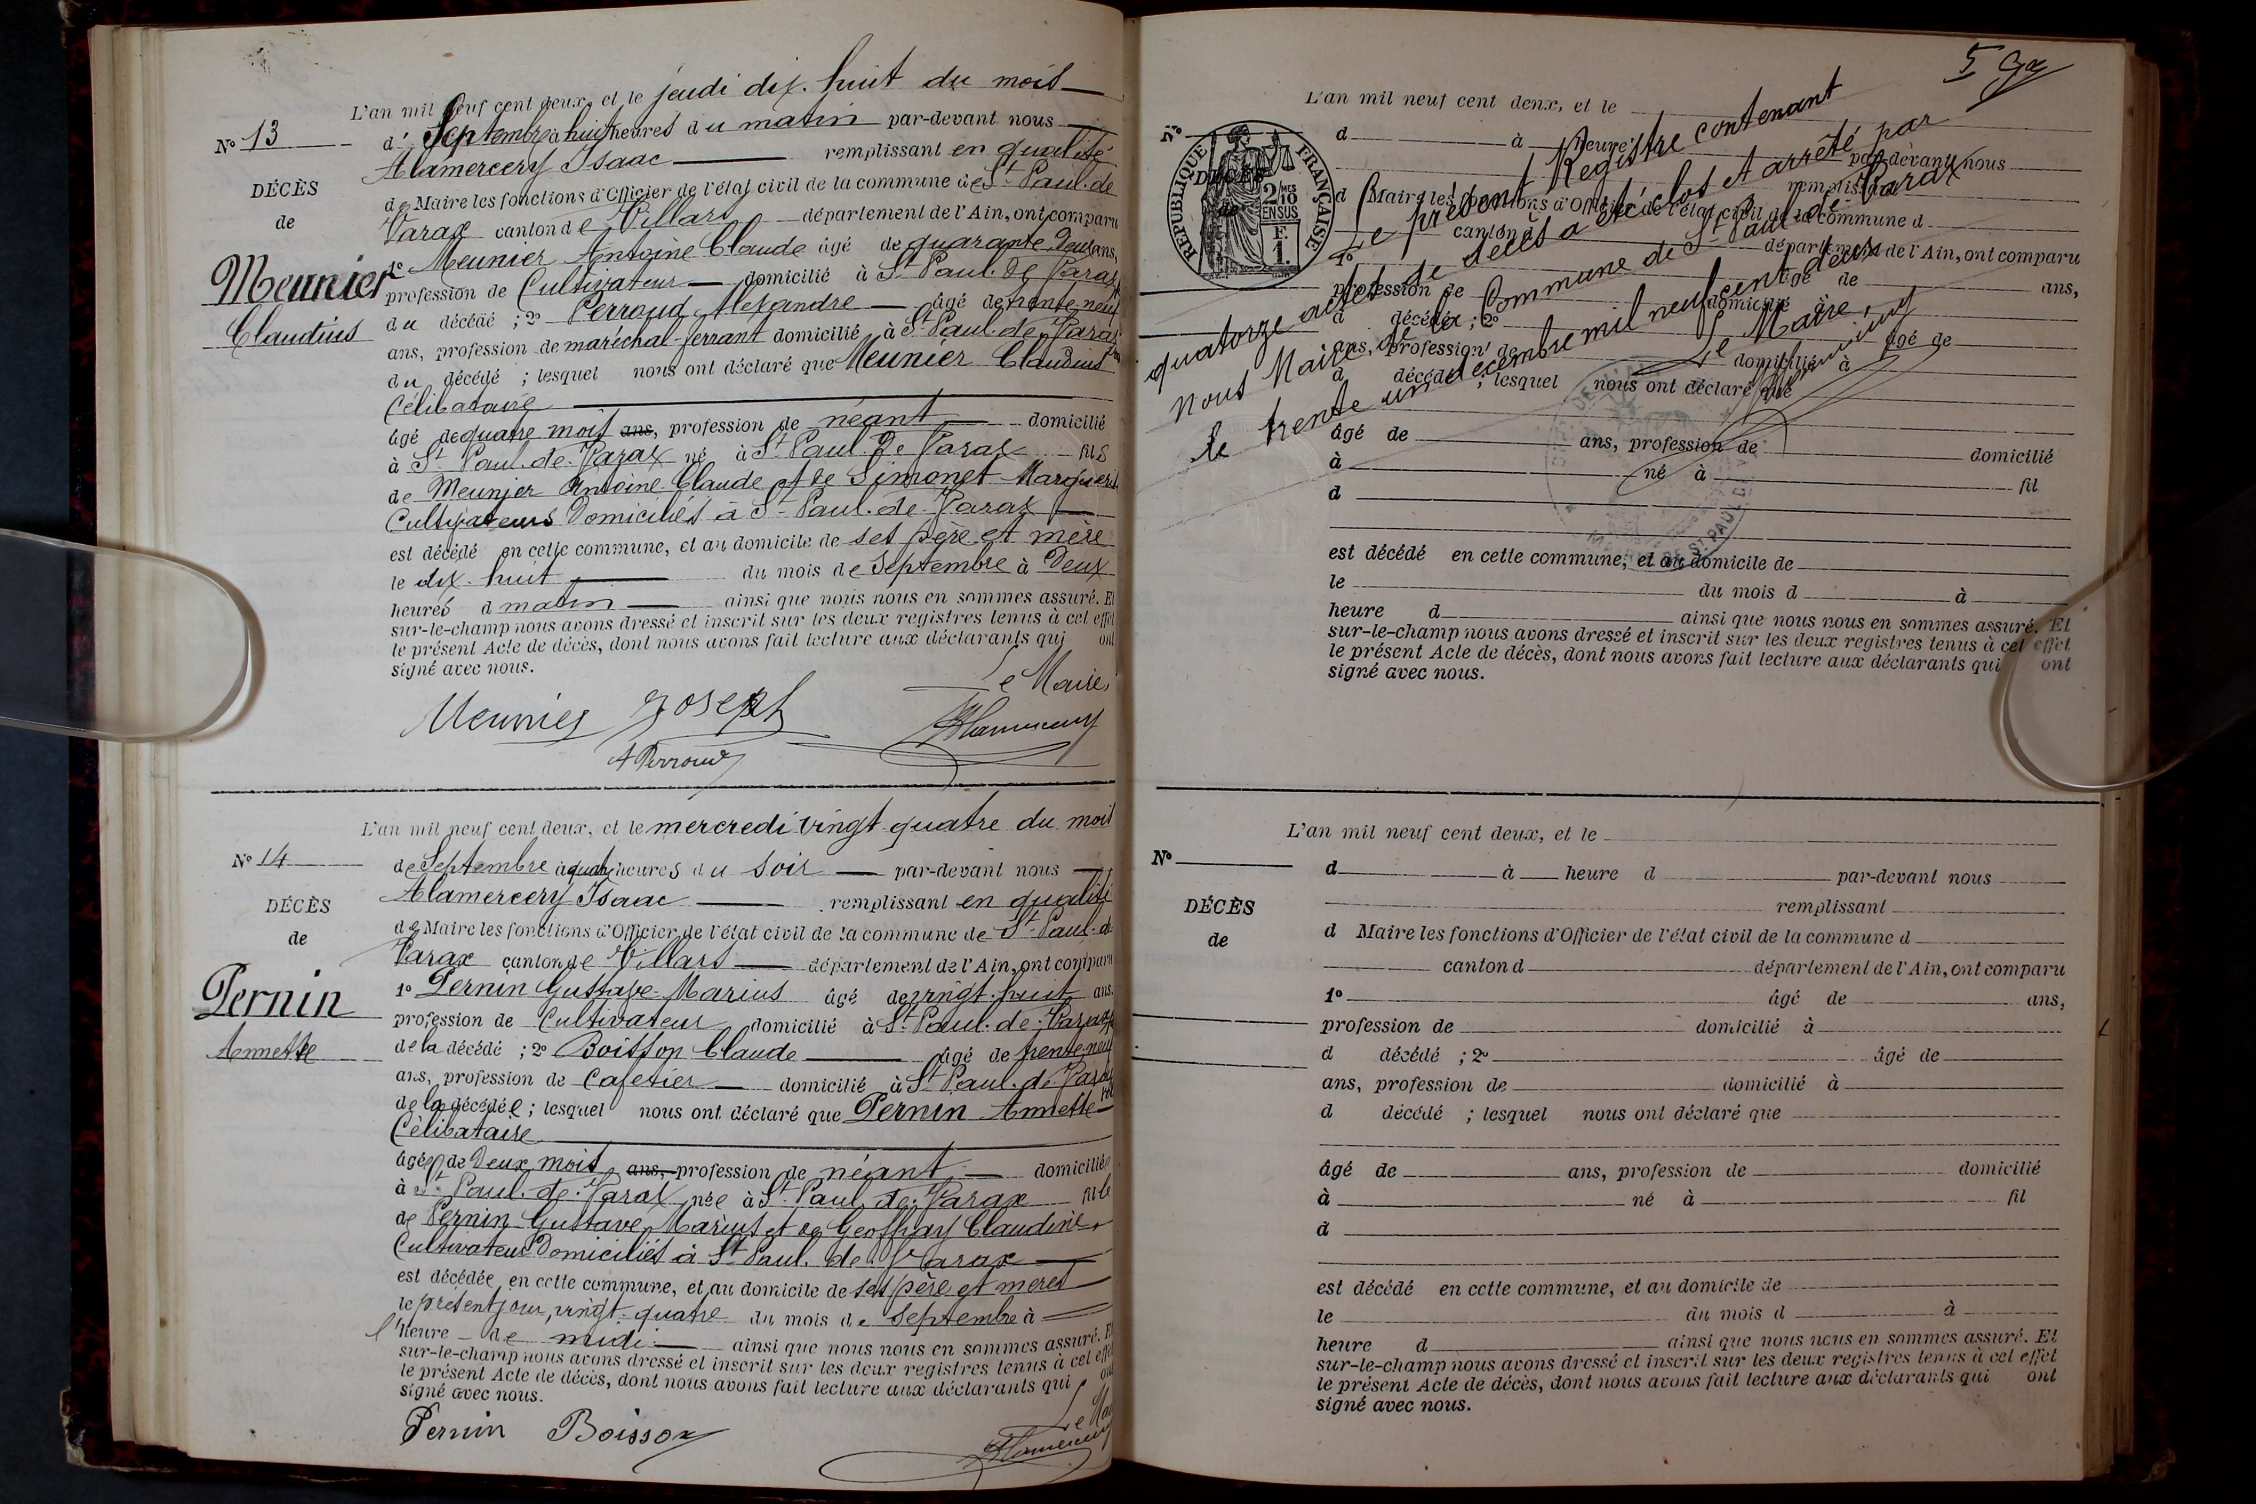 L'an mil neuf cent deux, et le jeudi dix-huit du mois
No 13
de Septembre à huit heures du matin par-devant nous
Alamercery Isaac remplissant en qualité
DÉCÈS
de Maire les fonctions d'Officier de l'état civil de la commune de St Paul-de
de
Varax canton de Villars département de l'Ain, ont comparu
Meunier
1o Meunier Antoine Claude âgé de quarante deux ans,
profession de Cultivateur domicilié à St Paul-de-Varax
Claudius
du décédé ; 2o Perroud Alexandre âgé de trente neuf
ans, profession de maréchal-ferrant domicilié à St Paul-de-Varax
du décédé ; lesquel nous ont déclaré que Meunier Claudius
Célibataire
âgé de quatre mois ans, profession de néant domicilié
à St Paul-de-Varax né à St Paul-de-Varax fils
de Meunier Antoine Claude et de Simonet Marguerite
Cultivateurs Domiciliés à St Paul-de-Varax
est décédé en cette commune, et au domicile de ses père et mère
le dix-huit du mois de Septembre à Deux
heures d matin ainsi que nous nous en sommes assuré. Et
sur-le-champ nous avons dressé et inscrit sur les deux registres tenus à cet effet
le présent Acte de décès, dont nous avons fait lecture aux déclarants qui ont
signé avec nous.
Le Maire,
Meunier Joseph
Alamercery
A Perroud
L'an mil neuf cent deux, et le mercredi vingt-quatre du mois
No 14
de Septembre à quatre heures du soir par-devant nous
Alamercery Isaac remplissant en qualité
DÉCÈS
de Maire les fonctions d'Officier de l'état civil de la commune de St Paul-de
de
Varax canton de Villars département de l'Ain, ont comparu
Pernin
1o Pernin Gustave-Marius âgé de vingt-huit ans,
profession de Cultivateur domicilié à St Paul-de-Varax
Annette
de la décédé ; 2o Boisson Claude âgé de trente-neuf
ans, profession de Cafetier domicilié à St Paul-de-Varax
de la décédée ; lesquel nous ont déclaré que Pernin Annette
Célibataire
âgée de Deux mois ans, profession de néant domiciliée
à St Paul-de-Varax née à St Paul-de-Varax fille
de Pernin Gustave Marius et de Geoffray Claudine
Cultivateurs Domiciliés à St Paul-de-Varax
est décédée en cette commune, et au domicile de ses père et mères
le présent jour, vingt-quatre du mois de Septembre à
l'heure de midi ainsi que nous nous en sommes assuré. Et
sur-le-champ nous avons dressé et inscrit sur les deux registres tenus à cet effet
le présent Acte de décès, dont nous avons fait lecture aux déclarants qui ont
signé avec nous.
Le Maire
Pernin Boisson
Alamercery
5
L'an mil neuf cent deux, et le
No
d à heure par-devant nous
remplissant
DÉCÈS
de
RÉPUBLIQUE FRANÇAISE
2/10 MES
EN SUS
F.
1.
d Maire les fonctions d'Officier de l'état civil de la commune d
canton d département de l'Ain, ont comparu
1o âgé de ans,
profession de domicilié à
d décédé ; 2o âgé de
ans, profession de domicilié à
d décédé ; lesquel nous ont déclaré que
âgé de ans, profession de domicilié
à né à fil
d
est décédé en cette commune, et au domicile de
le du mois d à
heure d ainsi que nous nous en sommes assuré. Et
sur-le-champ nous avons dressé et inscrit sur les deux registres tenus à cet effet
le présent Acte de décès, dont nous avons fait lecture aux déclarants qui ont
signé avec nous.
Le présent Registre contenant
quatorze actes de décès a été clos et arrêté par
nous Maire de la Commune de St Paul-de-Varax
le trente un décembre mil neuf cent deux
Le Maire,
Alamercery
L'an mil neuf cent deux, et le
No
d à heure d par-devant nous
remplissant
DÉCÈS
d Maire les fonctions d'Officier de l'état civil de la commune d
de
canton d département de l'Ain, ont comparu
1o âgé de ans,
profession de domicilié à
d décédé ; 2o âgé de
ans, profession de domicilié à
d décédé ; lesquel nous ont déclaré que
âgé de ans, profession de domicilié
à né à fil
d
est décédé en cette commune, et au domicile de
le du mois d à
heure d ainsi que nous nous en sommes assuré. Et
sur-le-champ nous avons dressé et inscrit sur les deux registres tenus à cet effet
le présent Acte de décès, dont nous avons fait lecture aux déclarants qui ont
signé avec nous.